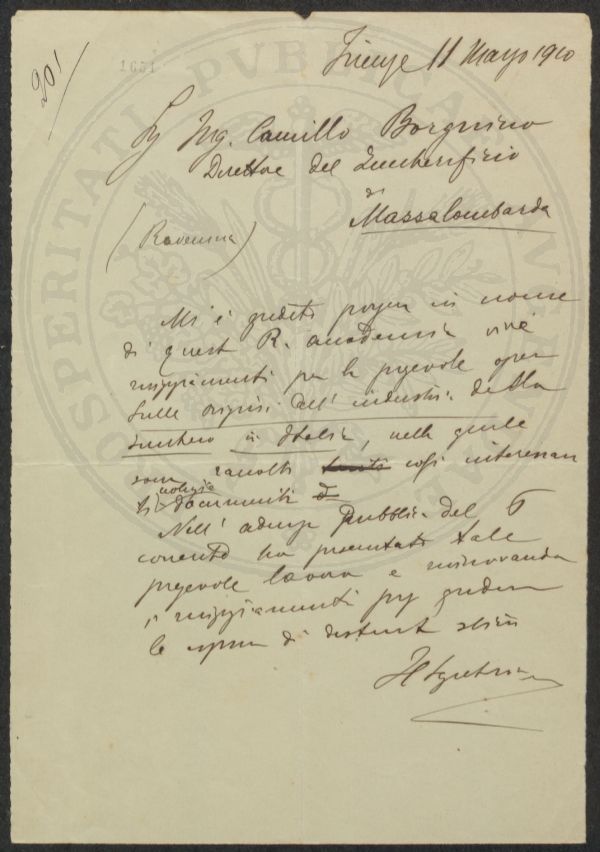 201
1651
PROSPERITATI PVBLICAE AVGENDAE
Firenze 11 Marzo 1910
Sig Ing. Camillo Borgnino
Direttore del Zuccherificio
di
Massalombarda
(Ravenna)
Mi è gradito porgere in nome
di questa R. accademia vivi
ringraziamenti per la pregevole opera
sulle origini dell'industria dello
zucchero in Italia, nella quale
sono raccolti tanti così interessan
ti notizie documenti
Nell' adunza pubblica del 6
corrente ho presentato tale
pregevole lavoro e rinnovando
i ringraziamenti prego gradire
le espre di distinta stima
Il Segretario